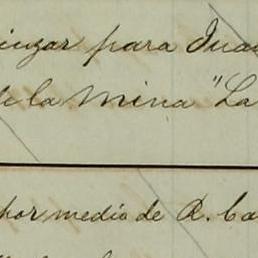 para Jua
de la Mina "La
por medio de R. Ca